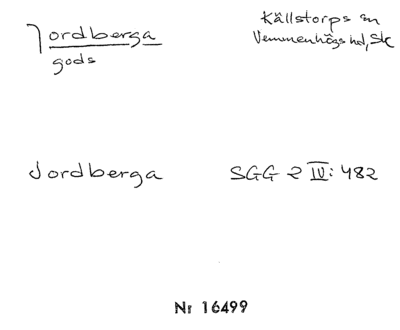 Jordberga
gods
Källstorps sn
Vemmenhögs hd, Sk
Jordberga
SGG 2 IV: 482
Nr 16499